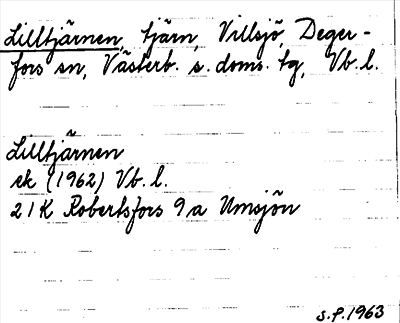 Lilltjärnen, tjärn, Villsjö, Deger-
fors sn, Västerb. s. doms. tg, Vb. l.
Lilltjärnen
ek (1962) Vb. l.
21K Robertsfors 9a Umsjön
S.P. 1963